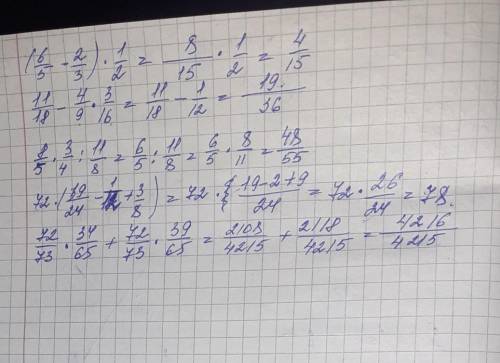 (6/5 - 2/3) · 1/2 = 8/15 · 1/2 = 4/15
11/18 - 4/9 · 3/16 = 11/18 - 1/12 = 19/36
8/5 · 3/4 : 11/8 = 6/5 : 11/8 = 6/5 · 8/11 = 48/55
72 · (19/24 - 1/12 + 3/8) = 72 · { 19-2+9/24 = 72 · 26/24 = 78.
72/73 · 34/65 + 72/73 · 39/65 = 2108/4215 + 2118/4215 = 4216/4215